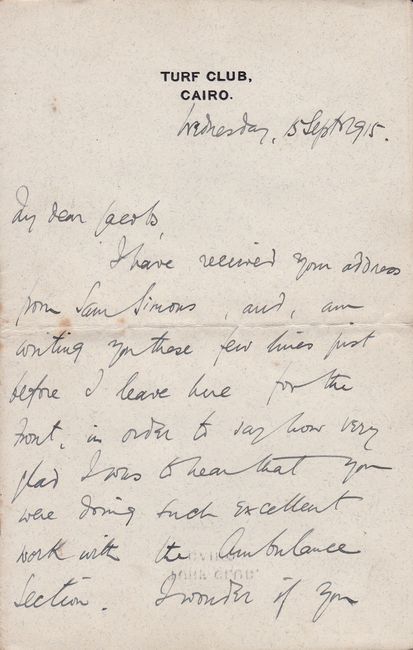 TURF CLUB,
CAIRO.
Wednesday, 15 Sept 1915.
My dear Jacobs,
I have received your address
from Sam Simons, and, am
writing you these few lines just
before I leave here for the
Front, in order to say how very
glad I was to hear that you
were doing such excellent
work with the Ambulance
Section. I wonder if you